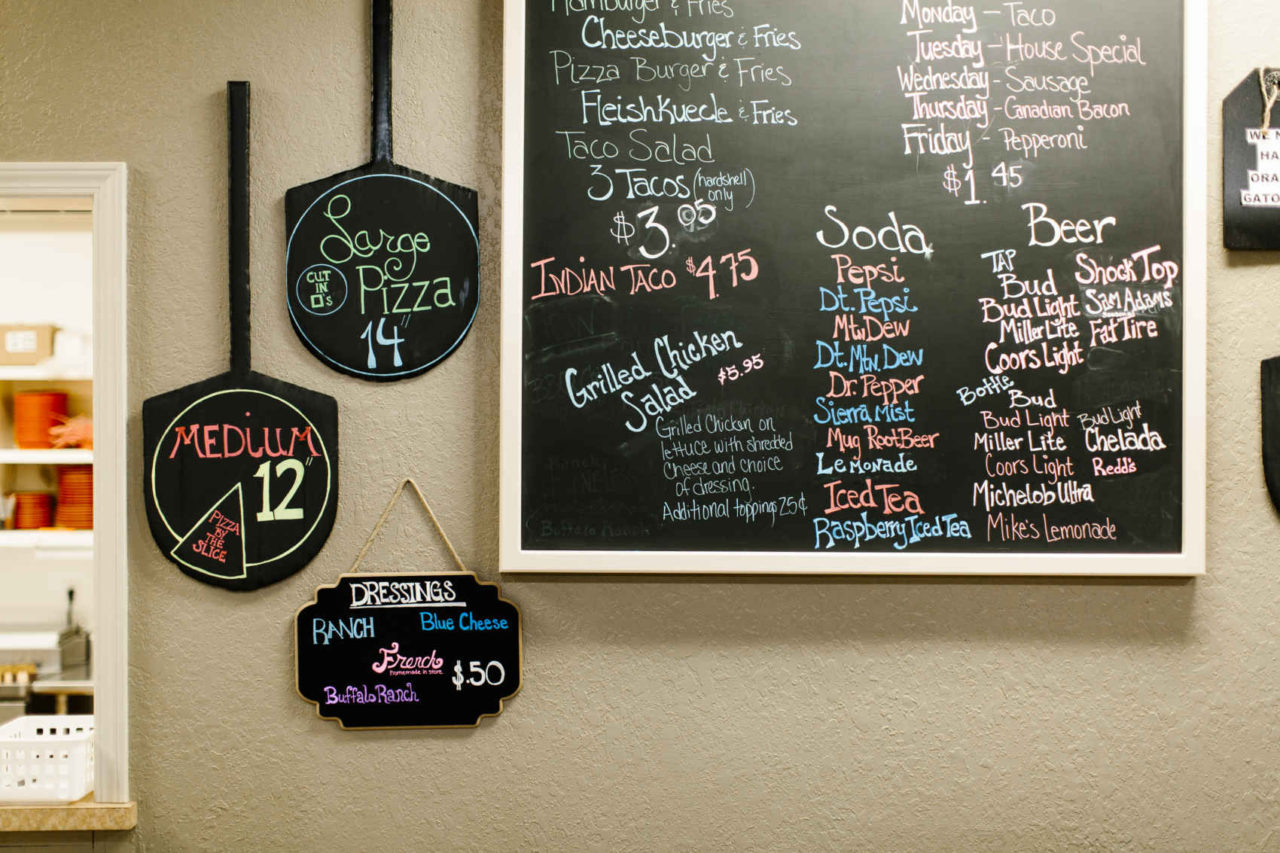 Hamburger & Fries
Cheeseburger & Fries
Pizza Burger & Fries
Fleishkuecle & Fries
Taco Salad
3 Tacos (hardshell only)
$3.95
INDIAN TACO $4.75
Grilled Chicken
Salad
$5.95
Grilled Chicken on
lettuce with shredded
Cheese and choice
of dressing.
Additional toppings 25¢
Monday - Taco
Tuesday - House Special
Wednesday - Sausage
Thursday - Canadian Bacon
Friday - Pepperoni
$1.45
Soda
Pepsi
Dt. Pepsi
Mtn Dew
Dt. Mtn. Dew
Dr. Pepper
Sierra Mist
Mug Root Beer
Lemonade
Iced Tea
Raspberry Iced Tea
Beer
TAP
Bud
Bud Light
Miller Lite
Coors Light
Shock Top
Sam Adams
Fat Tire
Bottle
Bud
Bud Light
Miller Lite
Coors Light
Michelob Ultra
Mike's Lemonade
Bud Light
Chelada
Redd's
Large
Pizza
14"
CUT
IN
□'s
MEDIUM
12"
PIZZA
BY
THE
SLICE
DRESSINGS
RANCH
Blue Cheese
French
homemade in store
$.50
Buffalo Ranch
Buffalo Ranch
WE
HA
ORA
GATO